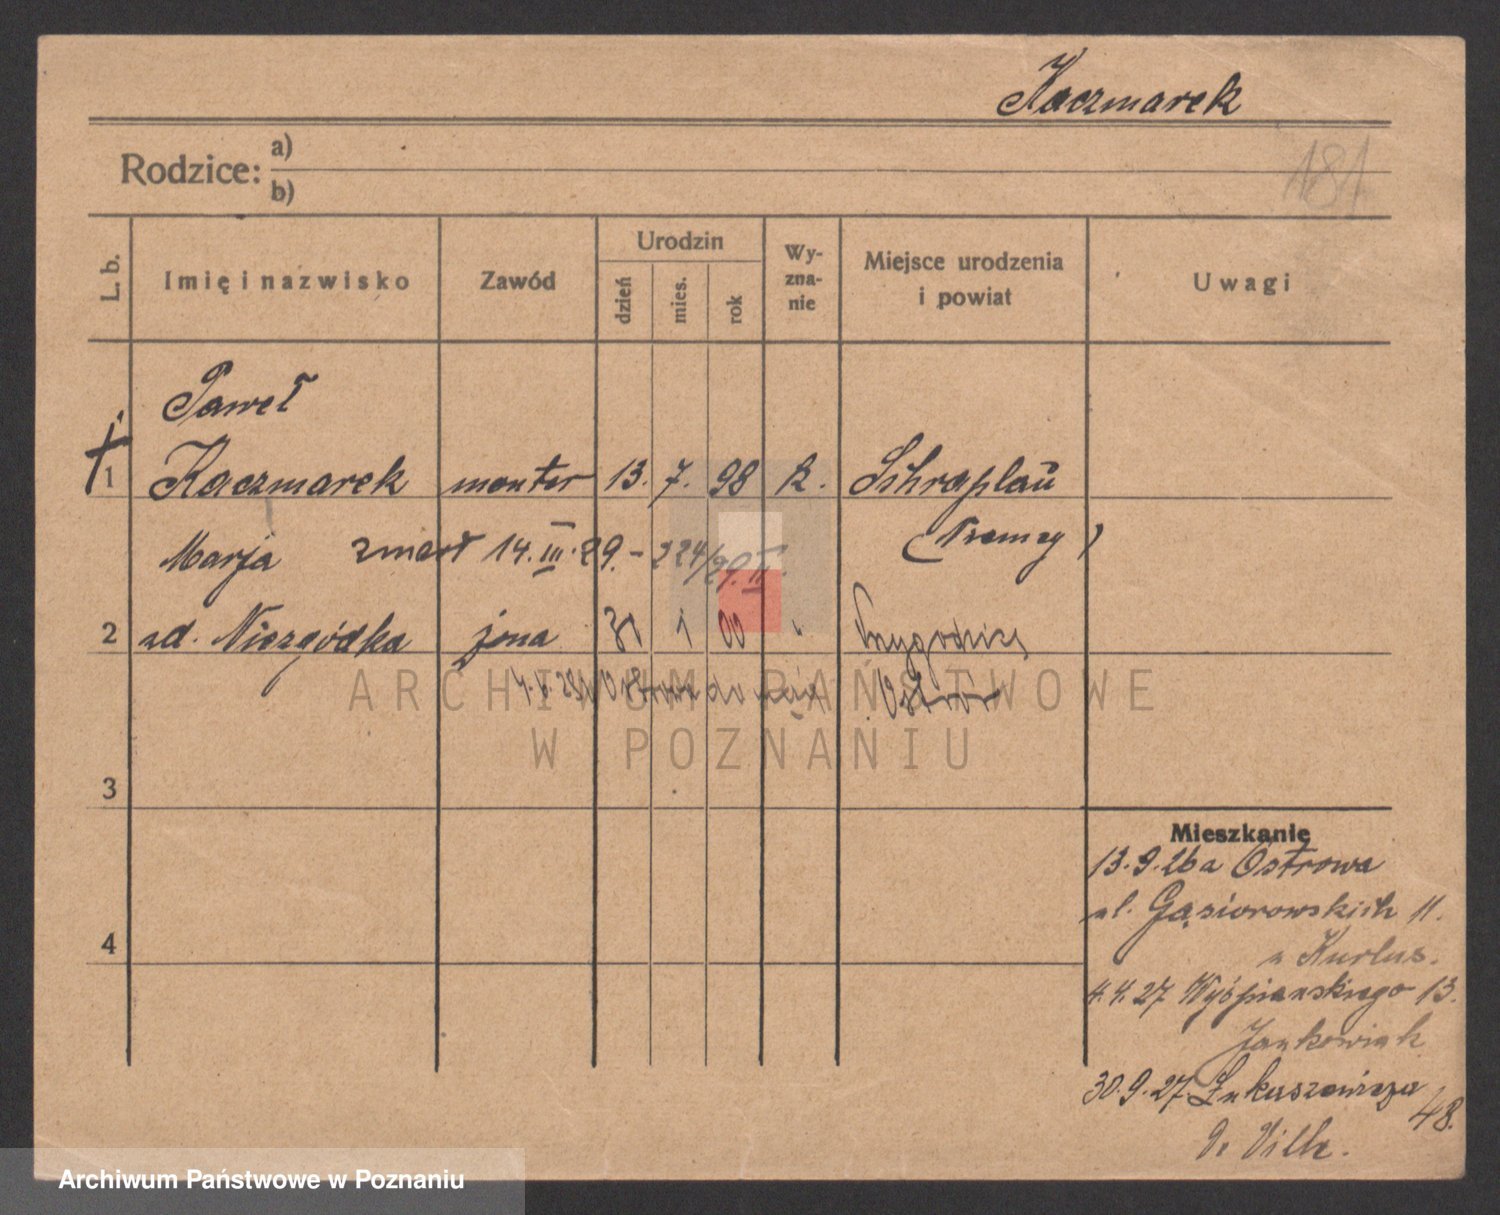 Kaczmarek
181
Rodzice: a)
b)
L. b.
Imię i nazwisko
Zawód
Urodzin
dzień
mies.
rok
Wy-
zna-
nie
Miejsce urodzenia
i powiat
Uwagi
Paweł
1 Kaczmarek monter 13. 7. 98 k. Schraplau
(Niemcy)
Marja zmarł 14. III. 29. - 224/29. II.
2 ud. Niezgódka żona 31 1 00 " Przygodzice
Ostrów
3
4
Mieszkanie
13.9.26 a Ostrowa
ul. Gąsiorowskich 11.
u Kurlus.
4.4.27 Wyśpianskiego 13.
Jankowiak
30.9.27. Łukaszewicza
48.
ARCHIWUM PAŃSTWOWE
W POZNANIU
Archiwum Państwowe w Poznaniu